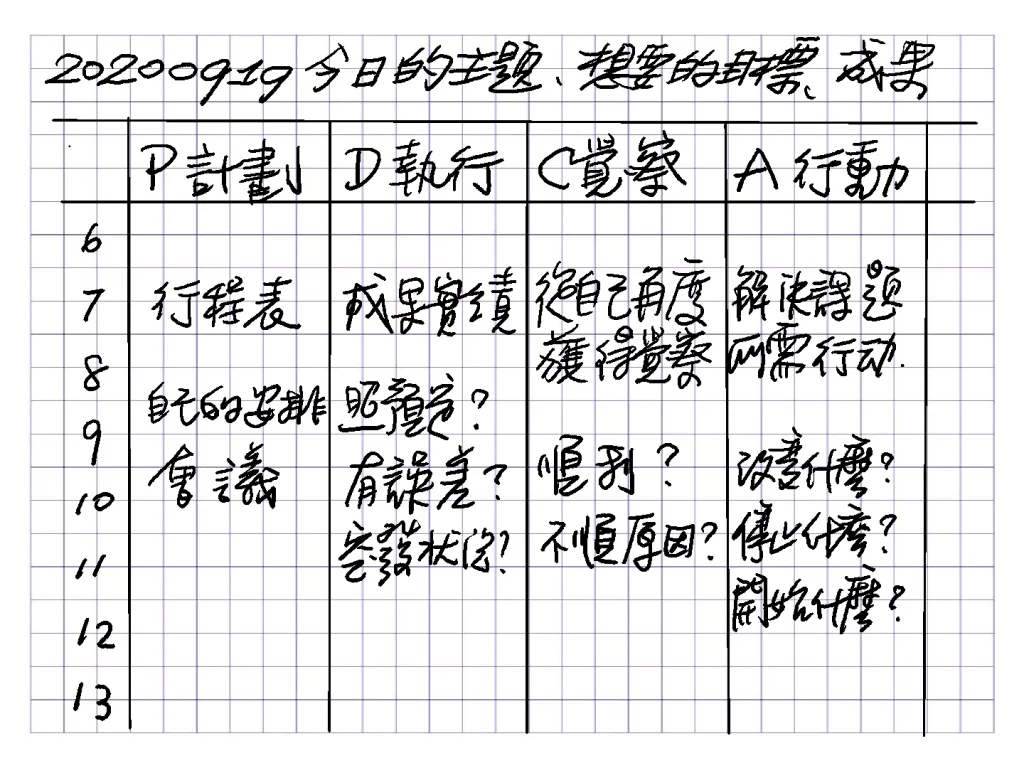 20200919 今日的主題、想要的目標、成果
P計劃 D執行 C覺察 A行動
6
7 行程表 成果實績 從自己再度 解決課題
獲得覺察 所需行动.
8
自己的安排 照預定?
9
會議 有誤差? 順利? 改變什麼?
10
突發狀況? 不順原因? 停止什麼?
11
開始什麼?
12
13